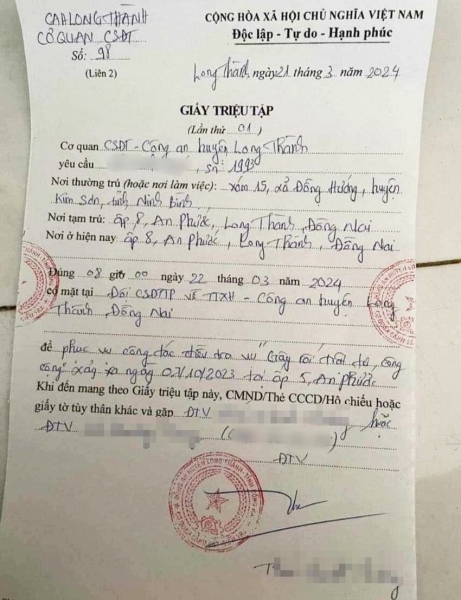 CA H. LONG THÀNH
CƠ QUAN CSĐT
Số: 98
(Liên 2)
CỘNG HÒA XÃ HỘI CHỦ NGHĨA VIỆT NAM
Độc lập - Tự do - Hạnh phúc
Long Thành, ngày 21 tháng 3 năm 2024
GIẤY TRIỆU TẬP
(Lần thứ 01)
Cơ quan CSĐT - Công an huyện Long Thành
yêu cầu , sn: 1993
Nơi thường trú (hoặc nơi làm việc): xóm 15, xã Đồng Hướng, huyện
Kim Sơn, tỉnh Ninh Bình
Nơi tạm trú: ấp 8, An Phước, Long Thành, Đồng Nai
Nơi ở hiện nay ấp 8, An Phước, Long Thành, Đồng Nai
Đúng 08 giờ 00 ngày 22 tháng 03 năm 2024
có mặt tại Đội CSĐTTP về TTXH - Công an huyện Long
Thành, Đồng Nai
để phục vụ công tác điều tra vụ Gây rối trật tự công
cộng xảy ra ngày 07/10/2023 tại ấp 5, An Phước
Khi đến mang theo Giấy triệu tập này, CMND/Thẻ CCCD/Hộ chiếu hoặc
giấy tờ tùy thân khác và gặp ĐTV hoặc
ĐTV
ĐTV